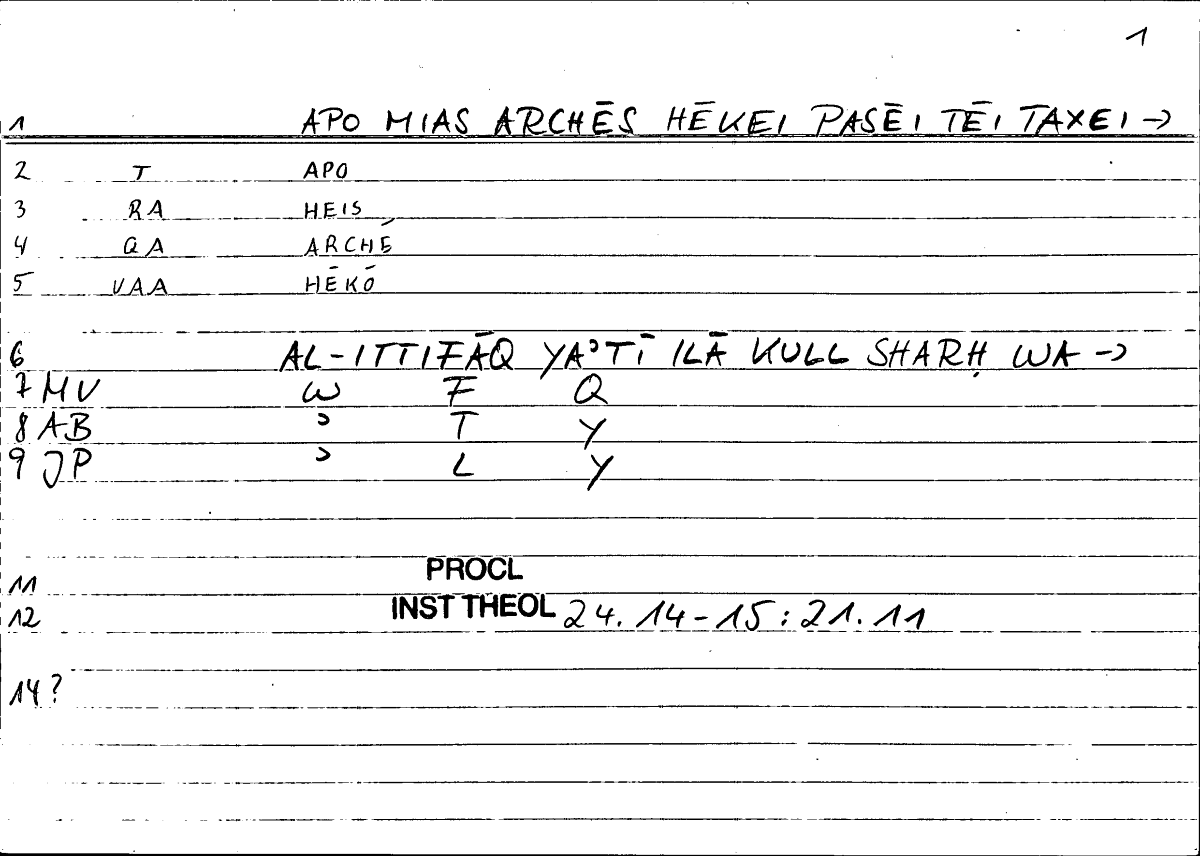 1
1 APO MIAS ARCHĒS HĒKEI PASĒI TĒI TAXEI →
2 T APO
3 RA HEIS
4 QA ARCHĒ
5 VAA HĒKŌ
6 AL-ITTIFĀQ YAʾTĪ ILĀ KULL SHARḤ WA →
7 MV W F Q
8 AB ʾ T Y
9 JP ʾ L Y
11 PROCL
12 INST THEOL 24.14-15:21.11
14?